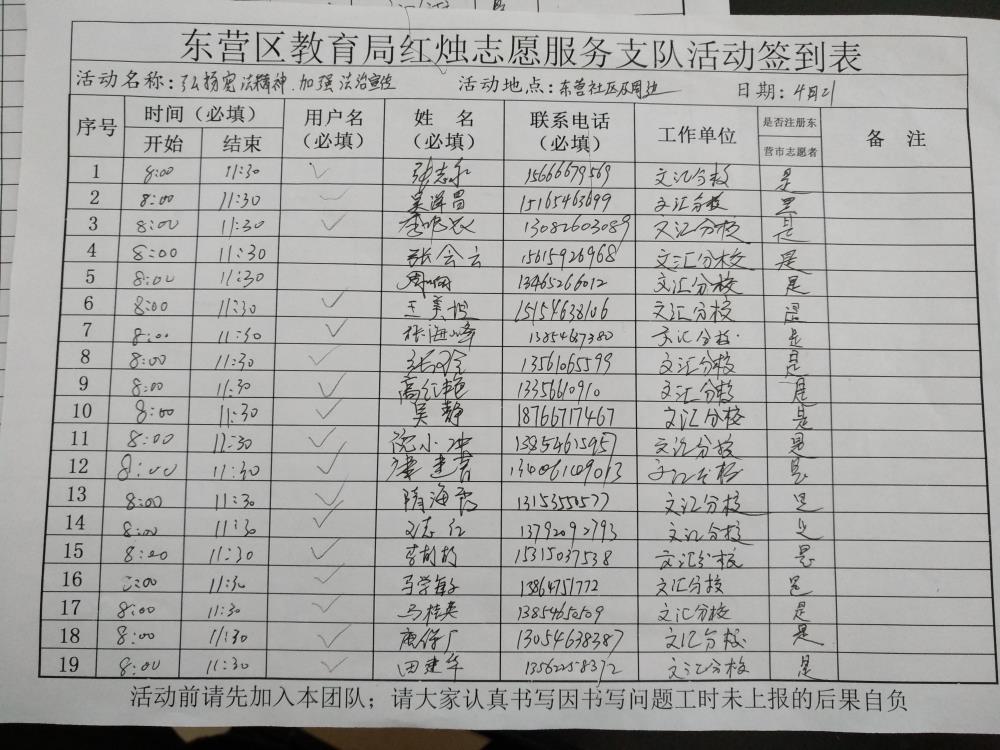 东营区教育局红烛志愿服务支队活动签到表
活动名称：弘扬宪法精神.加强法治宣传 活动地点：东营社区及周边 日期：4月21
序号 时间（必填） 用户名（必填） 姓 名（必填） 联系电话（必填） 工作单位 是否注册东营市志愿者 备 注
开始 结束
1 8:00 11:30 ✓ 张志永 15666679569 文汇分校 是
2 8:00 11:30 ✓ 15165463699 文汇分校 是
3 8:00 11:30 ✓ 13082603089 文汇分校 是
4 8:00 11:30 张会云 15615926968 文汇分校 是
5 8:00 11:30 周 13465266012 文汇分校 是
6 8:00 11:30 ✓ 王美 15154638106 文汇分校 是
7 8:00 11:30 ✓ 张海峰 13854687380 文汇分校 是
8 8:00 11:30 ✓ 张 13561065599 文汇分校 是
9 8:00 11:30 ✓ 高红艳 13356610910 文汇分校 是
10 8:00 11:30 ✓ 吴静 18766717467 文汇分校 是
11 8:00 11:30 ✓ 沈小冲 13854615957 文汇分校 是
12 8:00 11:30 ✓ 文汇分校 是
13 8:00 11:30 ✓ 隋海秀 13153550577 文汇分校 是
14 8:00 11:30 ✓ 刘志红 13792092793 文汇分校 是
15 8:00 11:30 ✓ 李 15315037538 文汇分校 是
16 8:00 11:30 ✓ 马学 13864751772 文汇分校 是
17 8:00 11:30 ✓ 马桂英 13854650509 文汇分校 是
18 8:00 11:30 ✓ 13054638387 文汇分校 是
19 8:00 11:30 ✓ 田建华 13562258372 文汇分校 是
活动前请先加入本团队；请大家认真书写因书写问题工时未上报的后果自负